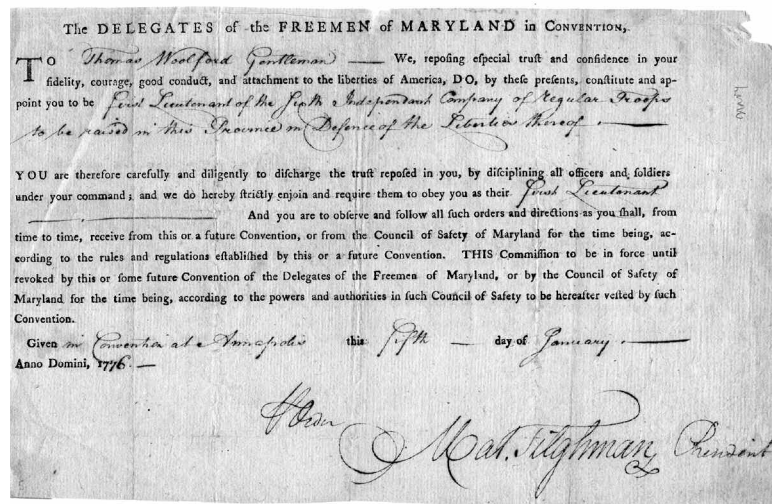 The DELEGATES of the FREEMEN of MARYLAND in CONVENTION,
TO Thomas Woolford Gentleman — We, reposing eſpecial truſt and confidence in your
fidelity, courage, good conduct, and attachment to the liberties of America, DO, by theſe preſents, conſtitute and ap-
point you to be First Lieutenant of the Sixth Independant Company of Regular Troops
to be raised in this Province in Defence of the Liberties thereof. —
YOU are therefore carefully and diligently to diſcharge the truſt repoſed in you, by diſciplining all officers and ſoldiers
under your command; and we do hereby ſtrictly enjoin and require them to obey you as their First Lieutenant
— And you are to obſerve and follow all ſuch orders and directions as you ſhall, from
time to time, receive from this or a future Convention, or from the Council of Safety of Maryland for the time being, ac-
cording to the rules and regulations eſtabliſhed by this or a future Convention. THIS Commiſſion to be in force until
revoked by this or ſome future Convention of the Delegates of the Freemen of Maryland, or by the Council of Safety of
Maryland for the time being, according to the powers and authorities in ſuch Council of Safety to be hereafter veſted by ſuch
Convention.
Given in Convention at Annapolis this fifth — day of January. —
Anno Domini, 1776. —
Order
Mat. Tilghman President